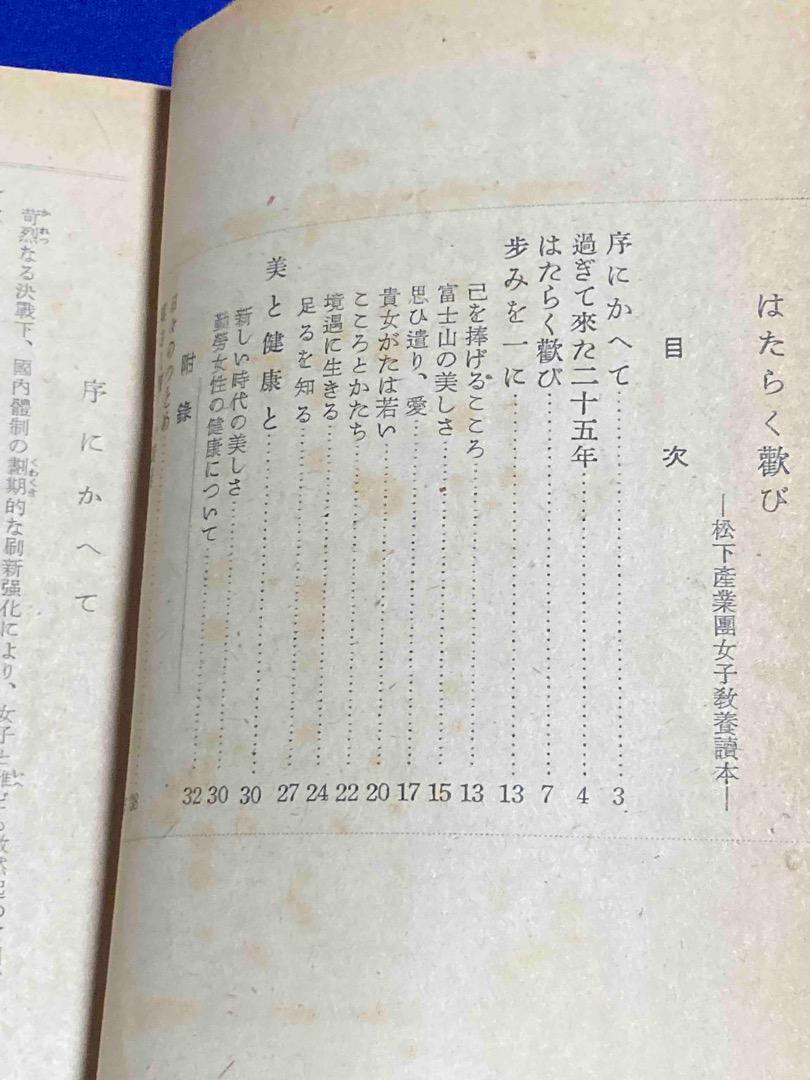 はたらく歡び
―松下產業團女子敎養讀本―
目次
序にかへて……3
過ぎて來た二十五年……4
はたらく歡び……7
步みを一に……13
己を捧げるこころ……13
富士山の美しさ……15
思ひ遣り、愛……17
貴女がたは若い……20
こころとかたち……22
境遇に生きる……24
足るを知る……27
美と健康と……30
新しい時代の美しさ……30
勤勞女性の健康について……32
附錄
序にかへて
苛烈なる決戰下、國內體制の劃期的な刷新强化により、女子と雖も